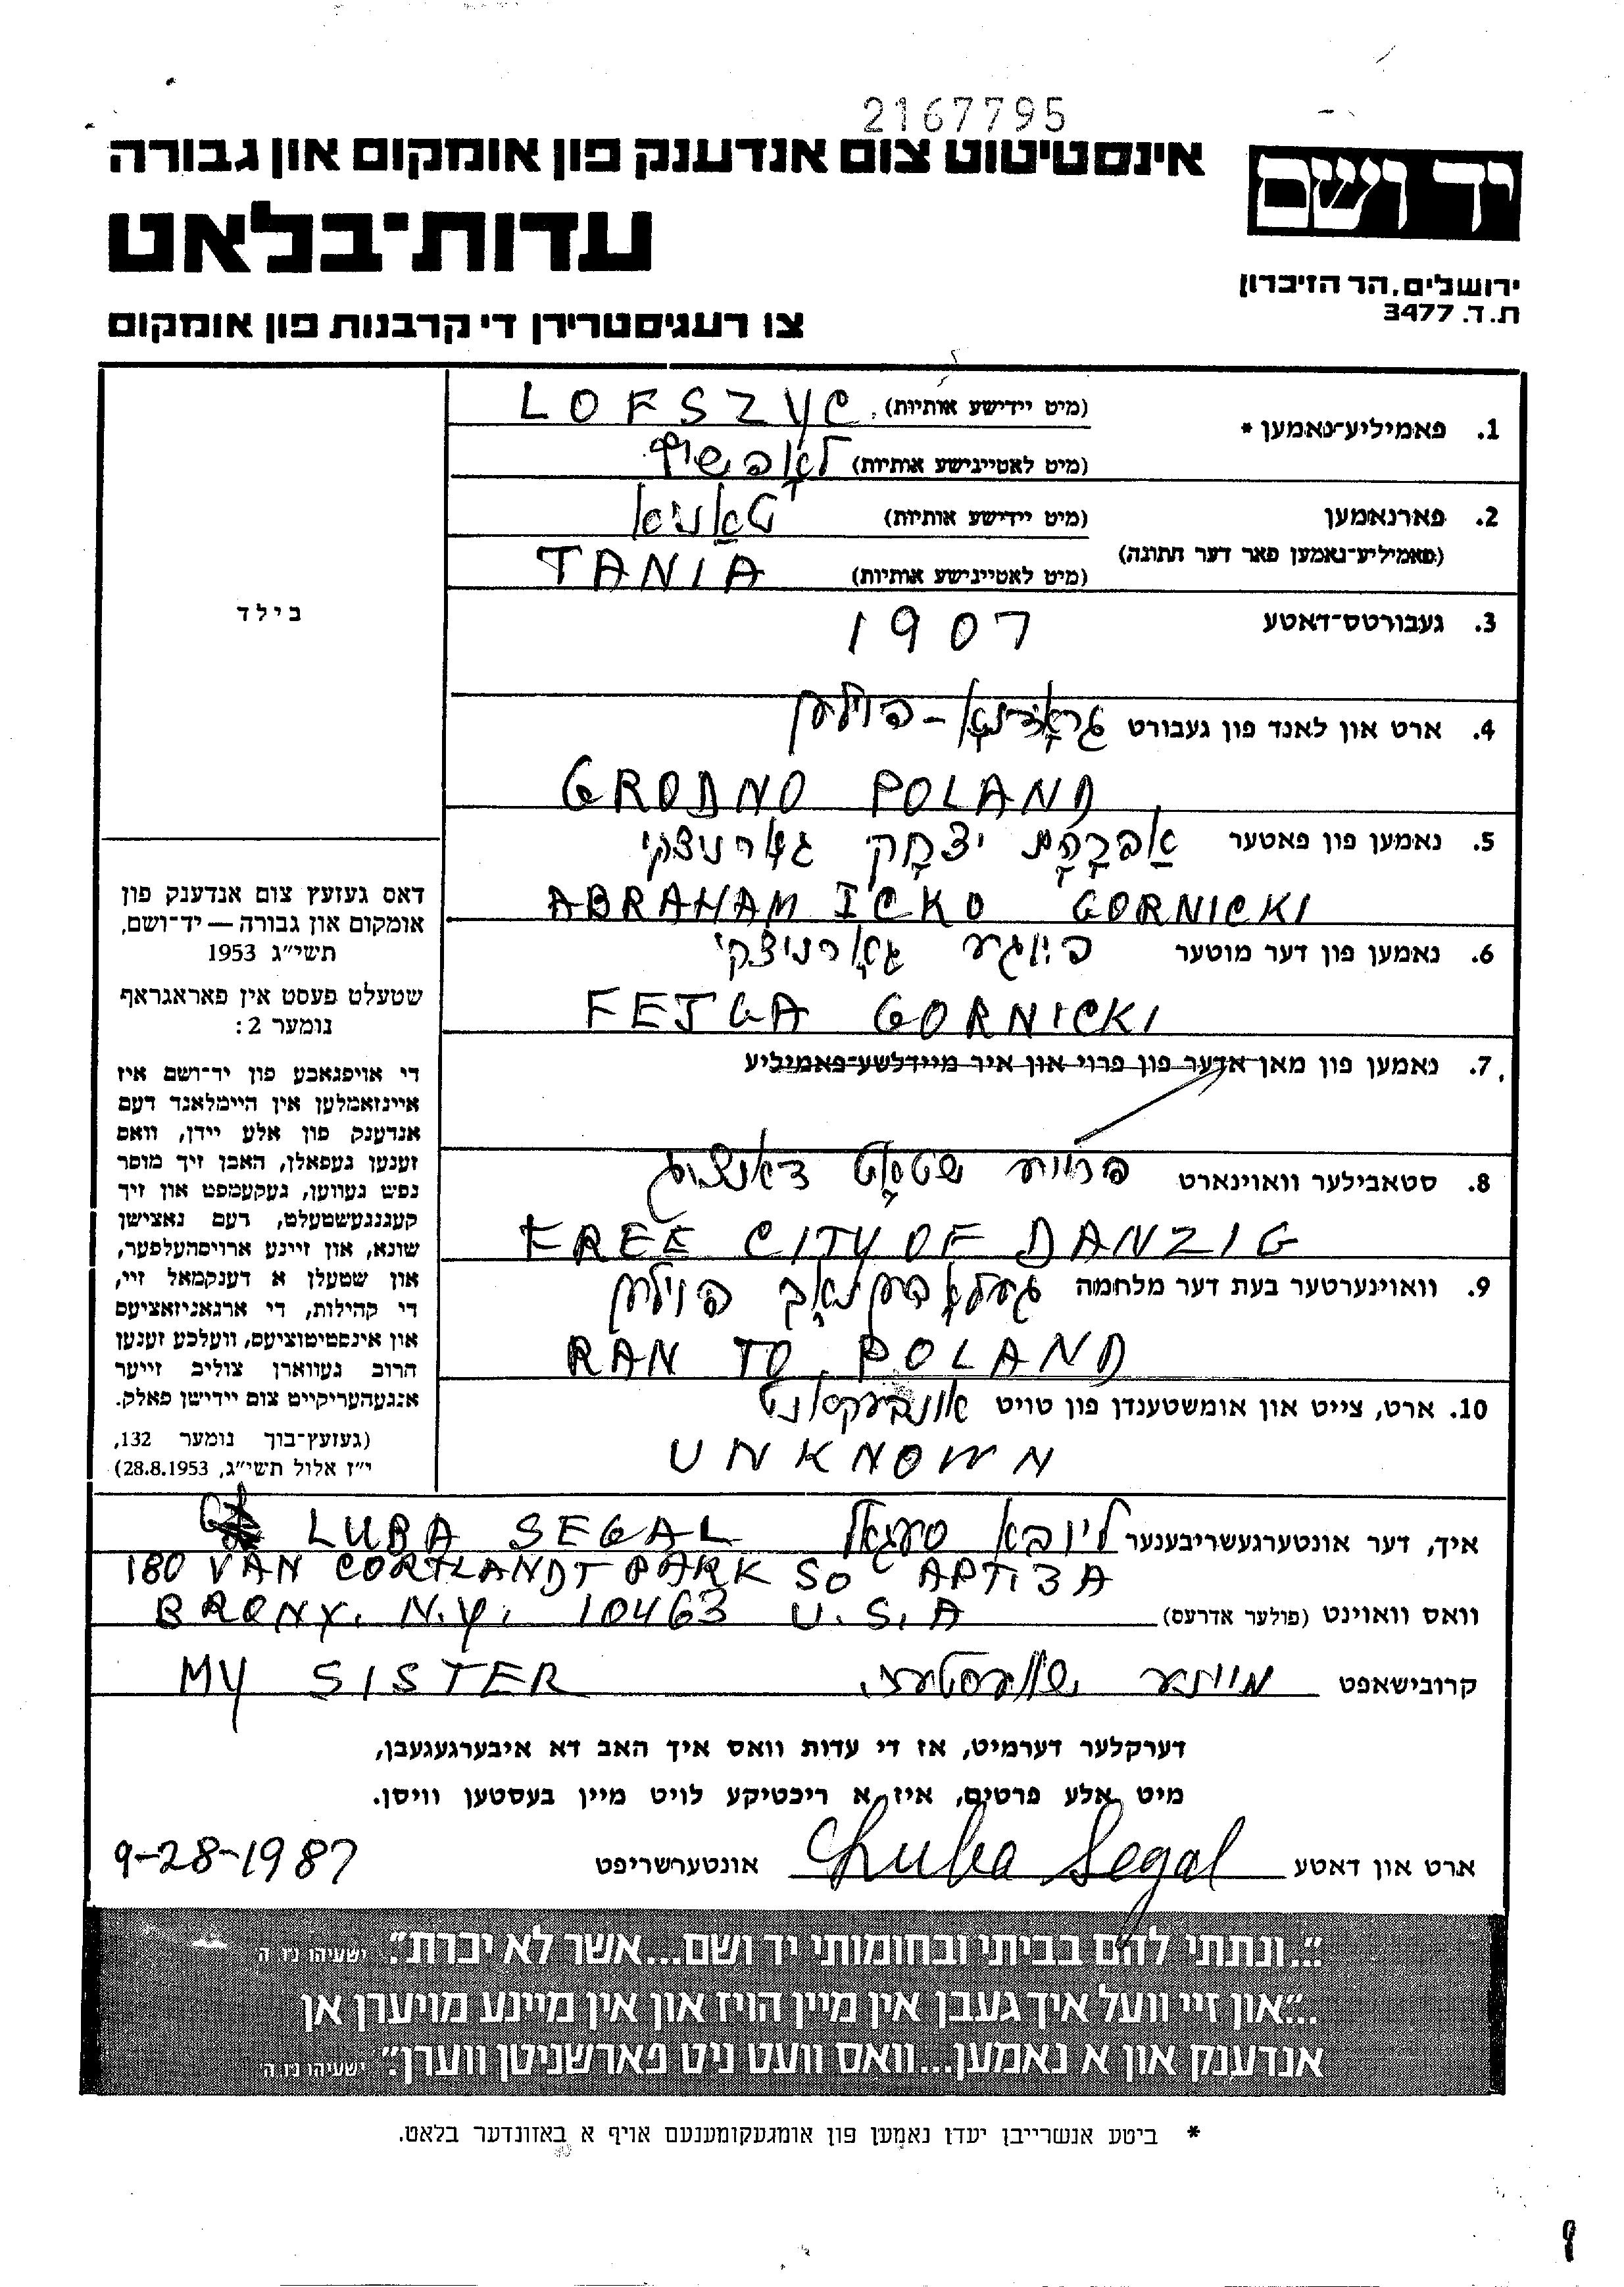 2167795
יד ושם
אינסטיטוט צום אנדענק פון אומקום און גבורה
עדות־בלאט
ירושלים, הר הזיכרון
ת.ד. 3477
צו רעגיסטרירן די קרבנות פון אומקום
בילד
1. פאמיליע־נאמען * (מיט יידישע אותיות) LOFSZYC
(מיט לאטיינישע אותיות)
2. פארנאמען (מיט יידישע אותיות) טאַניא
(פאמיליע־נאמען פאר דער חתונה) (מיט לאטיינישע אותיות) TANIA
3. געבורטס־דאטע 1907
4. ארט און לאנד פון געבורט גראָדנאָ – פוילען
GRODNO POLAND
5. נאמען פון פאטער אַבְרָהָם יצחָק גאָרניצקי
ABRAHAM ICKO GORNICKI
6. נאמען פון דער מוטער פייגע גאָרניצקי
FEJGA GORNICKI
7. נאמען פון מאן אדער פון פרוי און איר מיידלשע־פאמיליע
8. סטאבילער וווינארט פרייע שטאָט דאנציג
FREE CITY OF DANZIG
9. וווינערטער בעת דער מלחמה געלאָפען נאָך פוילען
RAN TO POLAND
10. ארט, צייט און אומשטענדן פון טויט אונבעקאנט
UNKNOWN
דאס געזעץ צום אנדענק פון
אומקום און גבורה — יד־ושם,
תשי״ג 1953
שטעלט פעסט אין פאראגראף
נומער 2:
די אויפגאבע פון יד־ושם איז
איינזאמלען אין היימלאנד דעם
אנדענק פון אלע יידן, וואס
זענען געפאלן, האבן זיך מוסר
נפש געווען, געקעמפט און זיך
קעגנגעשטעלט, דעם נאצישן
שונא, און זיינע ארויסהעלפער,
און שטעלן א דענקמאל זיי,
די קהילות, די ארגאניזאציעס
און אינסטיטוציעס, וועלכע זענען
הרוב געווארן צוליב זייער
אנגעהעריקייט צום יידישן פאלק.
(געזעץ־בוך נומער 132,
י״ז אלול תשי״ג, 28.8.1953)
איך, דער אונטערגעשריבענער ליובא סעגאל LUBA SEGAL
180 VAN CORTLANDT PARK SO APT 3A
וואס וווינט (פולער אדרעס) BRONX. N.Y. 10463 U.S.A
קרובישאפט מיינע שוועסטער MY SISTER
דערקלער דערמיט, אז די עדות וואס איך האב דא איבערגעגעבן,
מיט אלע פרטים, איז א ריכטיקע לויט מיין בעסטען וויסן.
ארט און דאטע Luba Segal אונטערשריפט 9-28-1987
״...ונתתי להם בביתי ובחומותי יד ושם...אשר לא יכרת״. ישעיהו נ״ו ה
...״און זיי וועל איך געבן אין מיין הויז און אין מיינע מויערן אן
אנדענק און א נאמען...וואס וועט ניט פארשניטן ווערן״. ישעיהו נ״ו ה׳
* ביטע אנשרייבן יעדן נאמען פון אומגעקומענעם אויף א באזונדער בלאט.